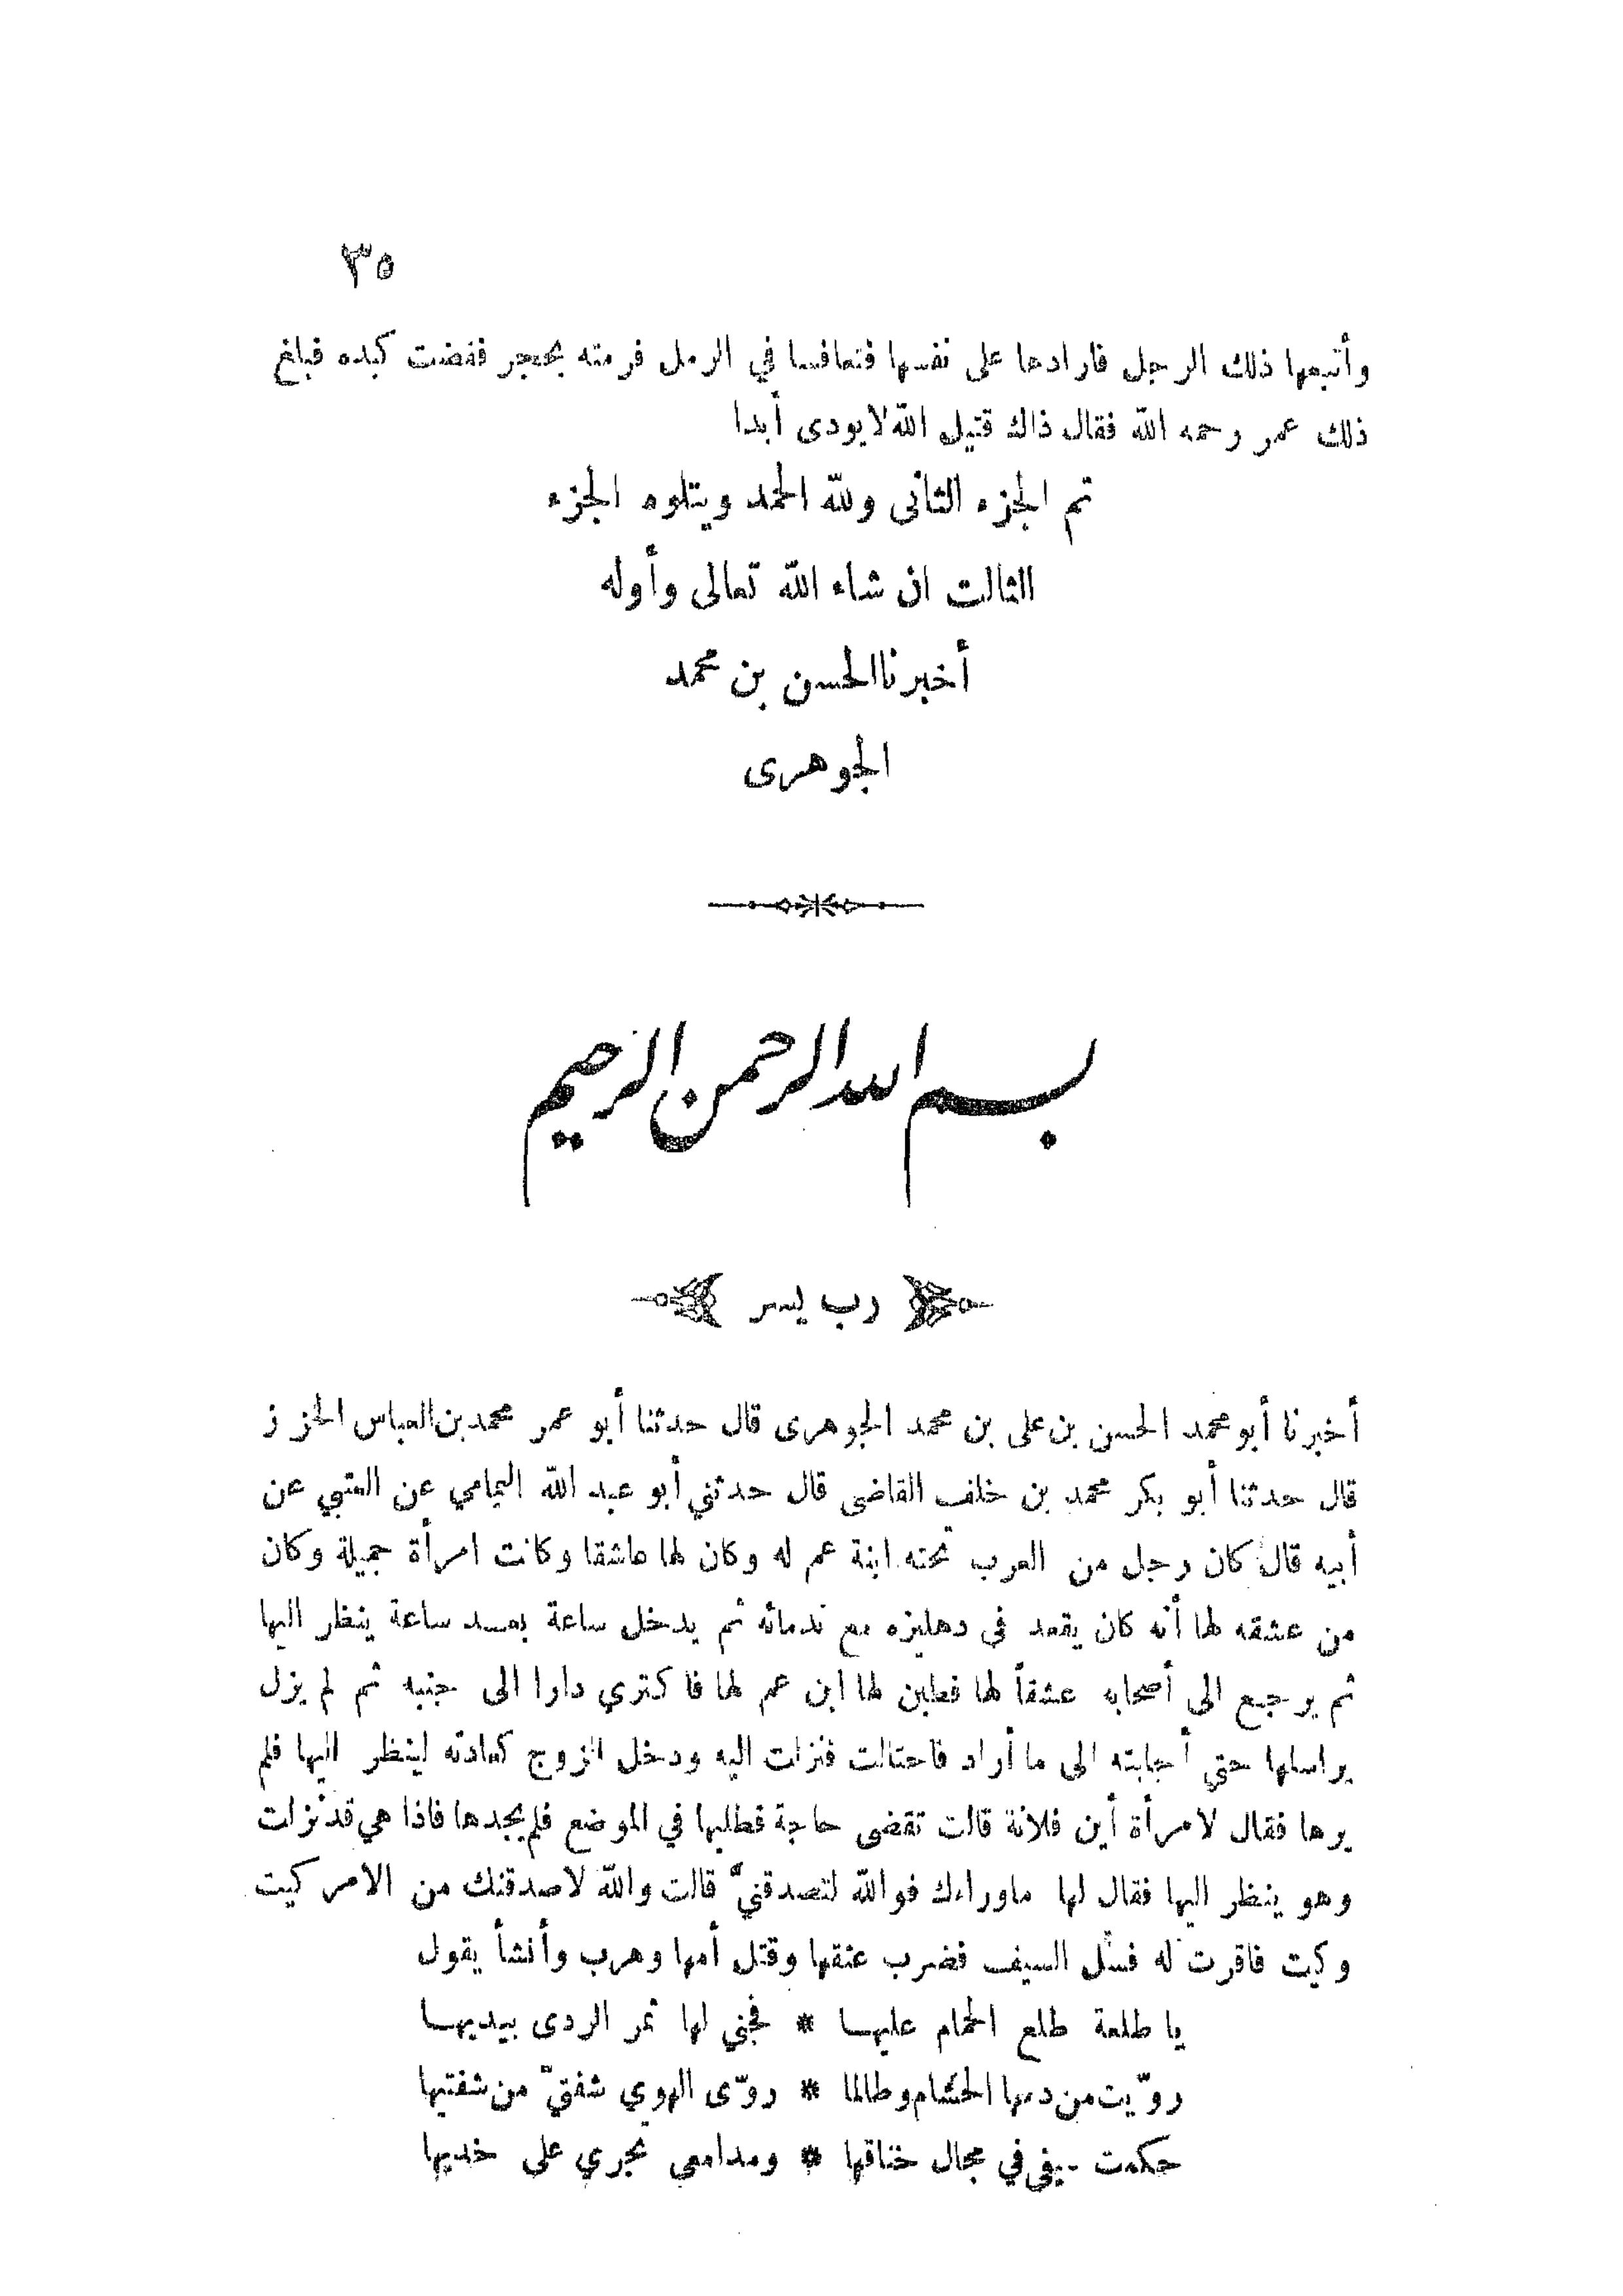 ٣٥
وأتبعها ذلك الرجل فارادها على نفسها فتعافسا في الرمل فرمته بحجر ففضت كبده فبلغ
ذلك عمر رحمه الله فقال ذاك قتيل الله لا يودى أبدا
تم الجزء الثانى ولله الحمد ويتلوه الجزء
الثالث ان شاء الله تعالى وأوله
أخبرنا الحسن بن محمد
الجوهرى
بسم الله الرحمن الرحيم
رب يسر
أخبرنا أبو محمد الحسن بن على بن محمد الجوهرى قال حدثنا أبو عمر محمد بن العباس الخز ز
قال حدثنا أبو بكر محمد بن خلف القاضى قال حدثني أبو عبد الله اليمامي عن العتبي عن
أبيه قال كان رجل من العرب تحته ابنة عم له وكان لها عاشقا وكانت امرأة جميلة وكان
من عشقه لها أنه كان يقعد فى دهليزه مع ندمائه ثم يدخل ساعة بعد ساعة ينظر اليها
ثم يرجع الى أصحابه عشقاً لها فطبن لها ابن عم لها فاكتري دارا الى جنبه ثم لم يزل
يراسلها حتي أجابته الى ما أراد فاحتالت فنزلت اليه ودخل الزوج كعادته لينظر اليها فلم
يرها فقال لامرأة أين فلانة قالت تقضى حاجة فطلبها في الموضع فلم يجدها فاذا هي قد نزلت
وهو ينظر اليها فقال لها ماوراءك فوالله لتصدقنيّ قالت والله لاصدقنك من الامر كيت
وكيت فاقرت له فسل السيف فضرب عنقها وقتل أمها وهرب وأنشأ يقول
يا طلعة طلع الحمام عليها * فجني لها ثمر الردى بيديها
روّيت من دمها الحسام وطالما * روّى الهوي شفتيّ من شفتيها
حكمت سيفى في مجال خناقها * ومدامعي تجري على خديها